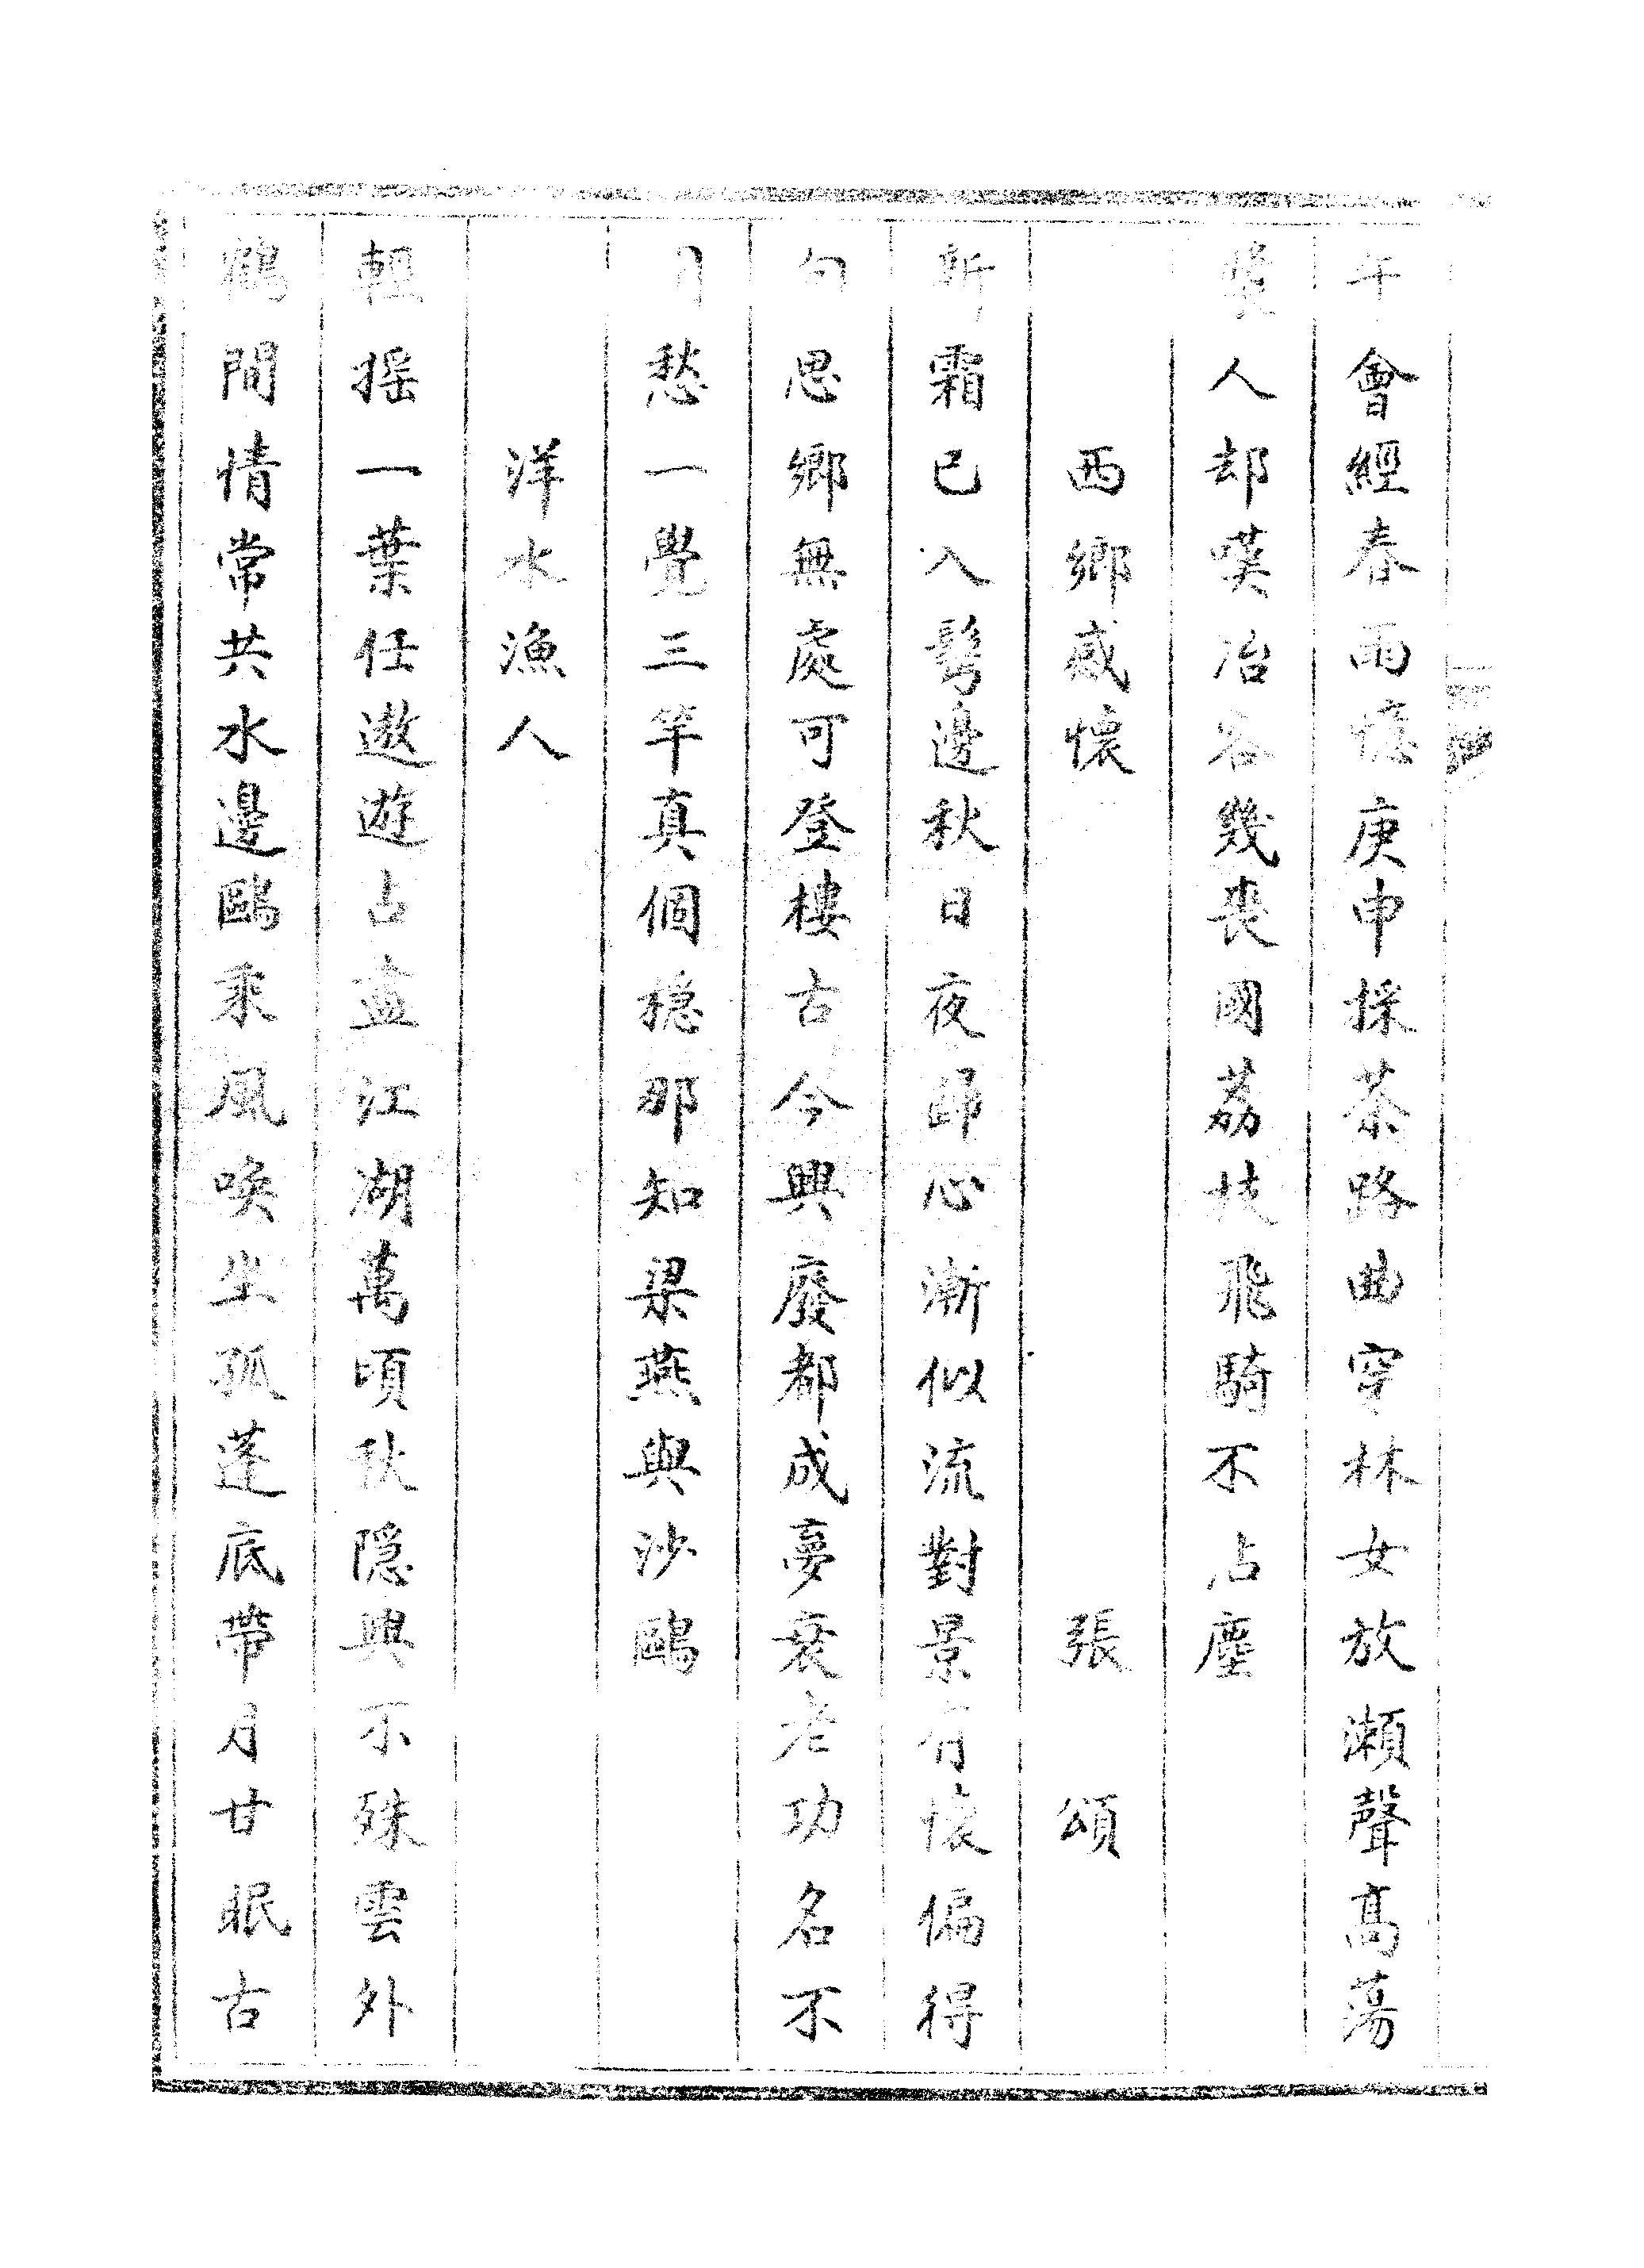 年會經春雨憶庚申採茶路曲穿林女放瀬聲高蕩
槳人却嘆冶容幾喪國荔枝飛騎不占塵
西鄉感懷 張頌
新霜已入鬂邊秋日夜歸心漸似流對景有懷偏得
句思鄉無處可登樓古今興廢都成夢衰老功名不
愁一覺三竿真個穏那知梁燕與沙鷗
洋水漁人
輕摇一葉任遨遊占盡江湖萬頃秋隠興不殊雲外
鶴間情常共水邊鷗乘風喚坐孤蓬底帶月甘眠古